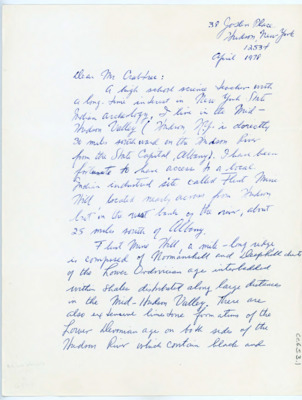 38 Joslin Place
Hudson, New York
12534
April 1978
Dear Mr Crabtree:
A high school science teacher with
a long-time interest in New York State
Indian archeology, I live in the Mid-
Hudson Valley (Hudson, NY is directly
30 miles southward on the Hudson River
from the State Capital, Albany). I have been
fortunate to have access to a local
Indian industrial site called Flint Mine
Hill located nearly across from Hudson
but on the west bank of the river, about
25 miles south of Albany.
Flint Mine Hill, a mile-long ridge
is composed of Normanskill and Deepkill cherts
of the Lower Ordovician age interbedded
within shales distributed along large distances
in the Mid-Hudson Valley. There are
also extensive limestone formations of the
Lower Devonian age on both sides of the
Hudson River which contain black and